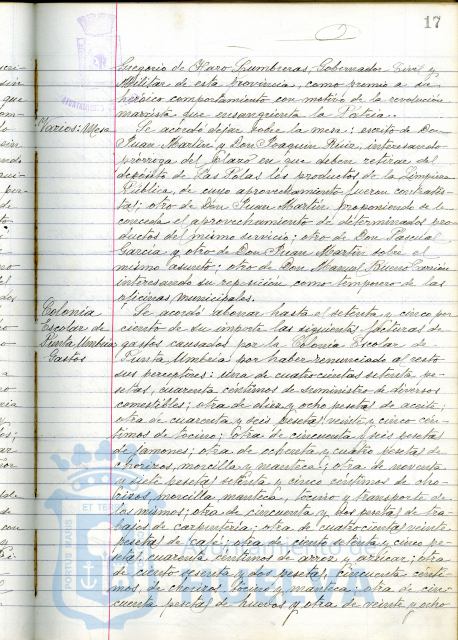 17
Gregorio de Haro Lumbreras, Gobernador Civil y
Militar de esta provincia, como premio a su
heróico comportamiento con motivo de la revolución
marxista que ensangrienta la Patria.
Varios: Mesa
Se acordó dejar sobre la mesa: escrito de Don
Juan Martín y Don Joaquín Ruiz, interesando
prórroga del plazo en que deben retirar del
depósito de Las Palas los productos de la Limpieza
Pública, de cuyo aprovechamiento fueron contratis-
tas; otro de Don Juan Martín proponiendo se le
conceda el aprovechamiento de determinados pro-
ductos del mismo servicio; otro de Don Pascual
García y otro de Don Juan Martín sobre el
mismo asunto; otro de Don Manuel Bueno
interesando su reposición como temporero de las
oficinas municipales.
Colonia
Escolar de
Punta Umbría
Gastos
Se acordó abonar hasta el setenta y cinco por
ciento de su importe las siguientes facturas de
gastos causados por la Colonia Escolar de
Punta Umbría por haber renunciado al resto
sus perceptores: una de cuatrocientas setenta pe-
setas, cuarenta céntimos de suministro de diversos
comestibles; otra de diez y ocho pesetas de aceite;
otra de cuarenta y seis pesetas veinte y cinco cén-
timos de tocino; otra de cincuenta y seis pesetas
de jamones; otra de ochenta y cuatro pesetas de
chorizos, morcilla y manteca; otra de noventa
y siete pesetas setenta y cinco céntimos de cho-
rizos, morcilla, manteca, tocino y transporte de
los mismos; otra de cincuenta y dos pesetas de tra-
bajos de carpintería; otra de cuatrocientas veinte
pesetas de café; otra de ciento setenta y cinco pe-
setas cuarenta céntimos de arroz y azúcar; otra
de ciento y dos pesetas, cincuenta cénti-
mos, de chorizos, tocino y manteca; otra de cin-
cuenta pesetas de huevos y otra de veinte y ocho